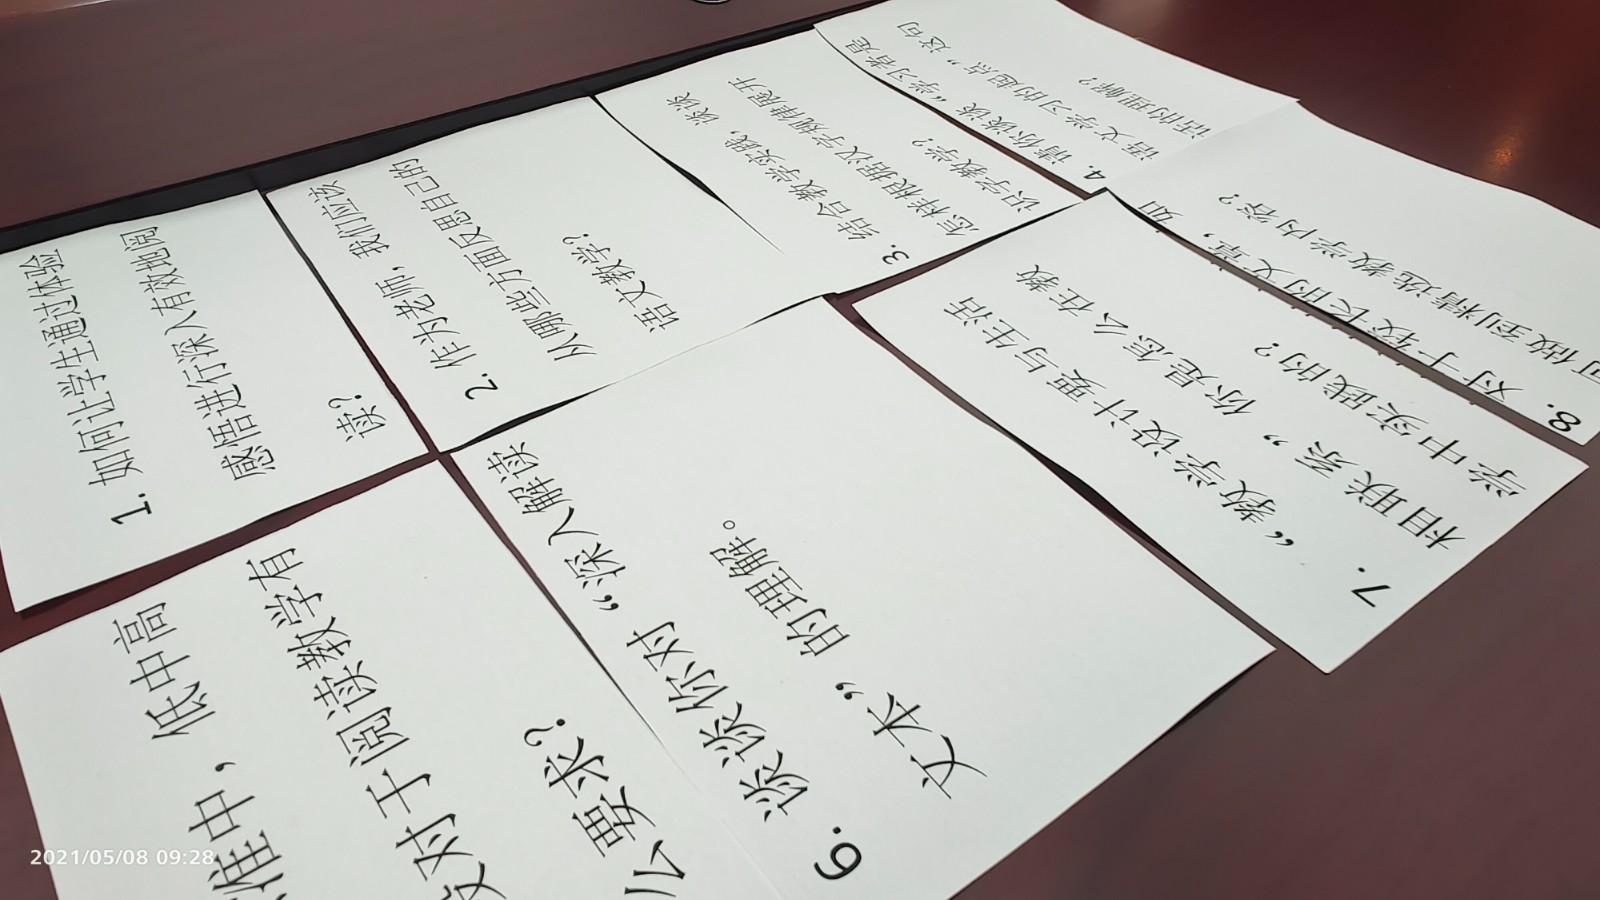 1. 如何让学生通过体验
感悟进行深入有效地阅
读？
2. 作为老师，我们应该
从哪些方面反思自己的
语文教学？
3. 结合教学实践，谈谈
怎样根据汉字规律展开
识字教学？
4. 请你谈谈“学习者是
语文学习的起点”这句
话的理解？
准中，低中高
段对于阅读教学有
么要求？
6. 谈谈你对“深入解读
文本”的理解。
7. “教学设计要与生活
相联系”你是怎么在教
学中实践的？
8. 对于较长的文章，如
可做到精选教学内容？
2021/05/08 09:28